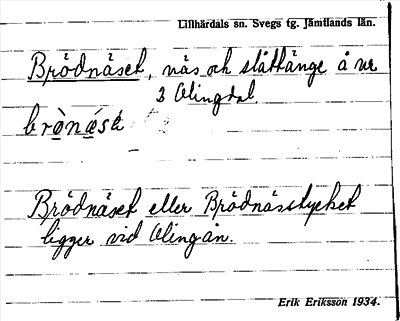 Lillhärdals sn. Svegs tg. Jämtlands län.
Brödnäset, näs och slåttänge å vr
3 Olingdal.
brònä́sé
Brödnäset eller Brödnässtycket
ligger vid Olingån.
Erik Eriksson 1934.